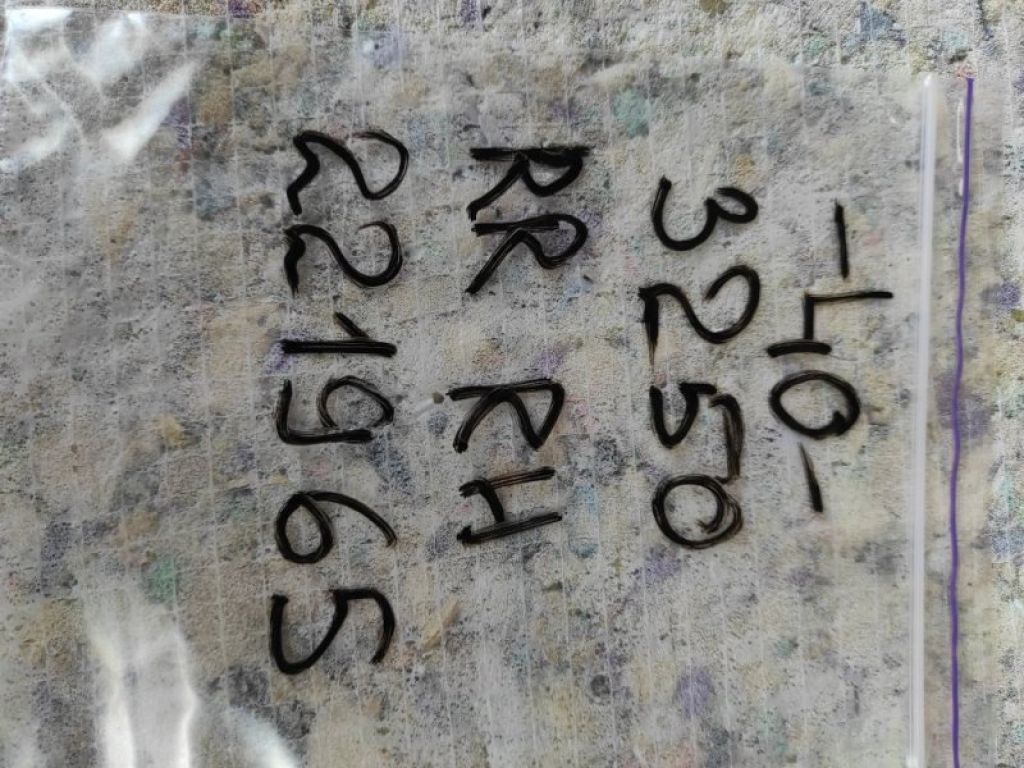 -40-
3250
RR RH
221965